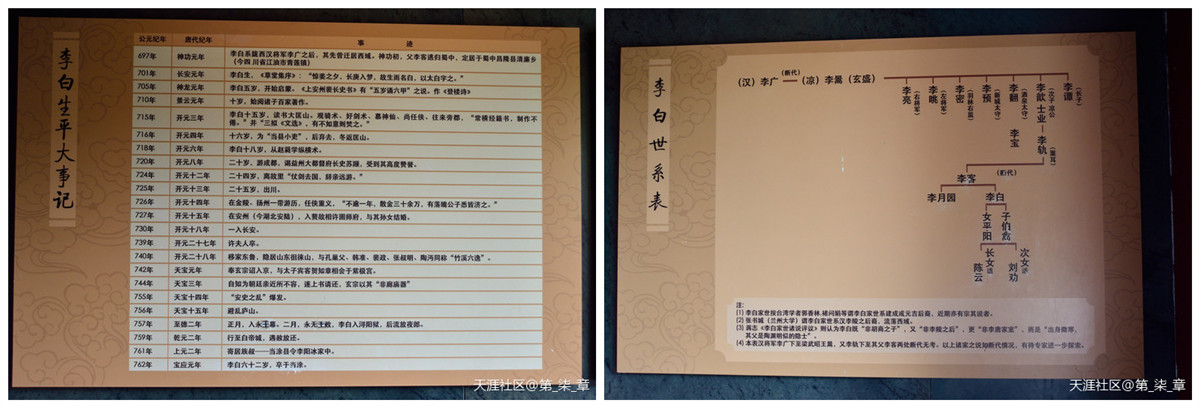 李白生平大事记
公元纪年 唐代纪年 事 迹
697年 神功元年 李白系陇西汉将军李广之后,其先曾迁居西域。神功初,父李客遁归蜀中,定居于蜀中昌隆县清廉乡
(今四川省江油市青莲镇)
701年 长安元年 李白生,《草堂集序》:“惊姜之夕,长庚入梦,故生而名白,以太白字之。”
705年 神龙元年 李白五岁,开始启蒙。《上安州裴长史书》有“五岁诵六甲”之说。作《登楼诗》
710年 景云元年 十岁,始阅诸子百家著作。
715年 开元三年 李白十五岁,读书大匡山。观骑术、好剑术、慕神仙、尚任侠、往来旁郡,“常横经籍书,制作不
倦。”并“三拟《文选》,有不如意则焚之。”
716年 开元四年 十六岁,为“当县小吏”,后弃去,冬返匡山。
718年 开元六年 李白十八岁,从赵蕤学纵横术。
720年 开元八年 二十岁,游成都,谒益州大都督府长史苏颋,受到其高度赞誉。
724年 开元十二年 二十四岁,离故里“仗剑去国,辞亲远游。”
725年 开元十三年 二十五岁,出川。
726年 开元十四年 在金陵、扬州一带游历,任侠重义,“不逾一年,散金三十余万,有落魄公子悉皆济之。”
727年 开元十五年 在安州(今湖北安陆),入赘故相许圉师府,与其孙女结婚。
730年 开元十八年 一入长安。
739年 开元二十七年 许夫人卒。
740年 开元二十八年 移家东鲁,隐居山东徂徕山,与孔巢父、韩准、裴政、张叔明、陶沔同称“竹溪六逸”。
742年 天宝元年 奉玄宗诏入京,与太子宾客贺知章相会于紫极宫。
744年 天宝三年 自知为朝廷亲近所不容,遂上书请还,玄宗以其“非廊庙器”
755年 天宝十四年 “安史之乱”爆发。
756年 天宝十五年 避乱庐山。
757年 至德二年 正月,入永王幕。二月,永王败,李白入浔阳狱,后流放夜郎。
759年 乾元二年 行至白帝城,遇赦放还。
761年 上元二年 寄居族叔——当涂县令李阳冰家中。
762年 宝应元年 李白六十二岁,卒于当涂。
天涯社区@第_柒_章
李白世系表
(汉)李广 (断代) (凉)李暠(玄盛)
李亮(右将军)
李眺(左将军)
李密(羽林右监)
李预(新城太守)
李翻(酒泉太守)
李歆 士业(次子 凉公)
李谭(长子)
李宝
李轨(重耳)
(断代)
李客
李月圆 李白
女平阳 子伯禽
长女适陈云
次女适刘劝
注:
(4) 本表汉将军李广下至梁武昭王暠,又李轨下至其父李客两处断代无考。以上诸家之说如断代情况,有待专家进一步探索。
天涯社区@第_柒_章